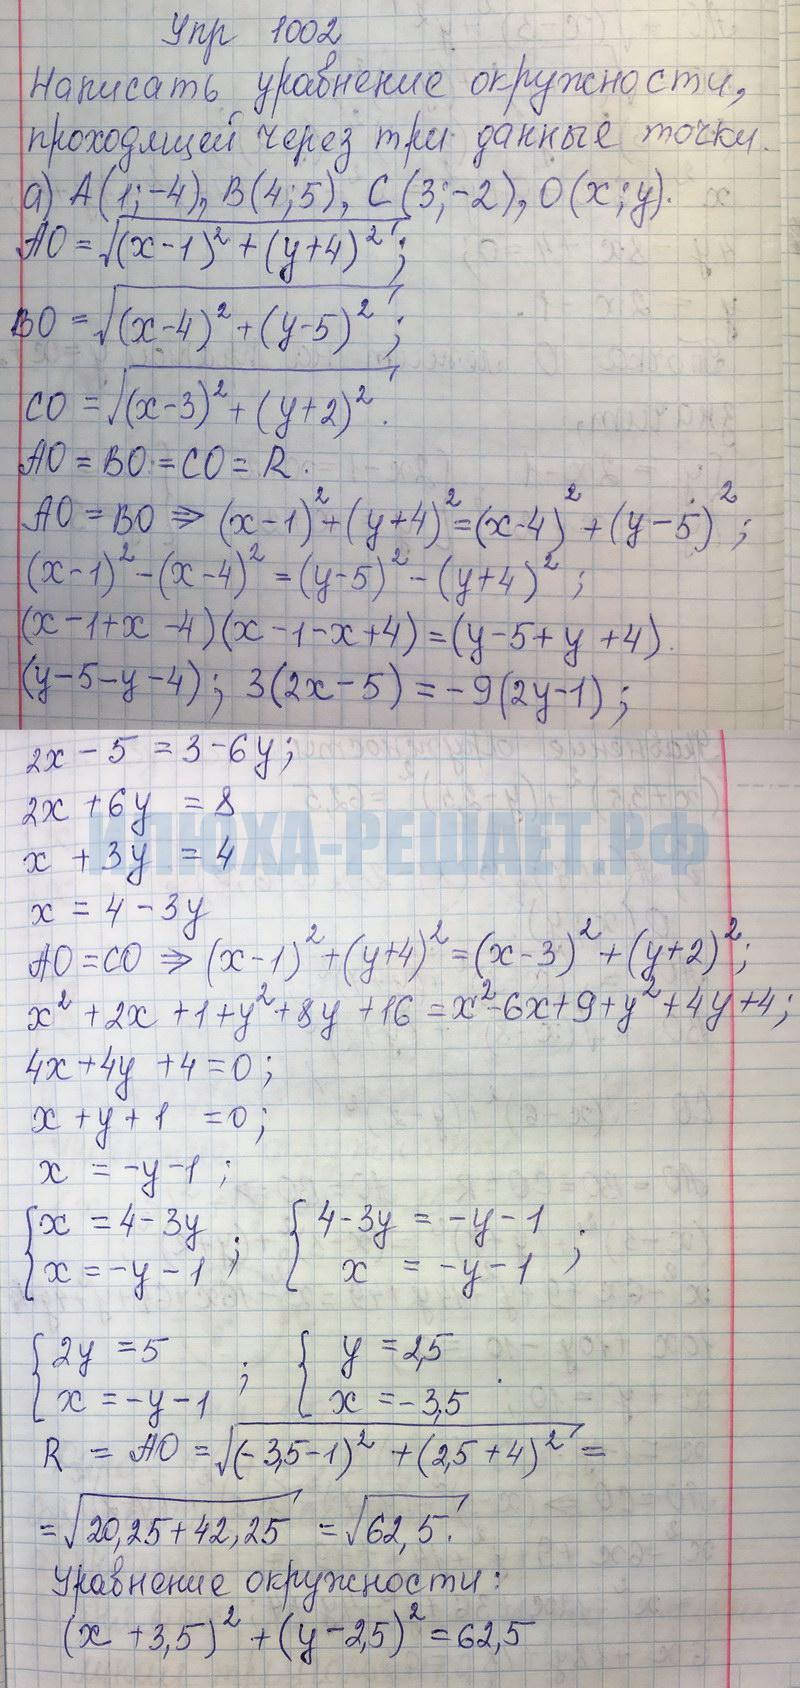 Упр 1002
Написать уравнение окружности,
проходящей через три данные точки.
а) А(1;-4), В(4;5), С(3;-2), О(x;y).
АО = √((x-1)² + (y+4)²);
ВО = √((x-4)² + (y-5)²);
СО = √((x-3)² + (y+2)²).
АО = ВО = СО = R.
АО = ВО ⇒ (x-1)² + (y+4)² = (x-4)² + (y-5)²;
(x-1)² - (x-4)² = (y-5)² - (y+4)²;
(x-1+x-4)(x-1-x+4) = (y-5+y+4).
(y-5-y-4); 3(2x-5) = -9(2y-1);
2x - 5 = 3 - 6y;
2x + 6y = 8
x + 3y = 4
ИЛЮХА-РЕШАЕТ.РФ
x = 4 - 3y
АО = СО ⇒ (x-1)² + (y+4)² = (x-3)² + (y+2)²;
x² + 2x + 1 + y² + 8y + 16 = x² - 6x + 9 + y² + 4y + 4;
4x + 4y + 4 = 0;
x + y + 1 = 0;
x = -y - 1;
{ x = 4 - 3y ; { 4 - 3y = -y - 1 ;
{ x = -y - 1 { x = -y - 1
{ 2y = 5 ; { y = 2,5 .
{ x = -y - 1 { x = -3,5
R = АО = √((-3,5-1)² + (2,5+4)²) =
= √(20,25 + 42,25) = √(62,5).
Уравнение окружности:
(x + 3,5)² + (y - 2,5)² = 62,5